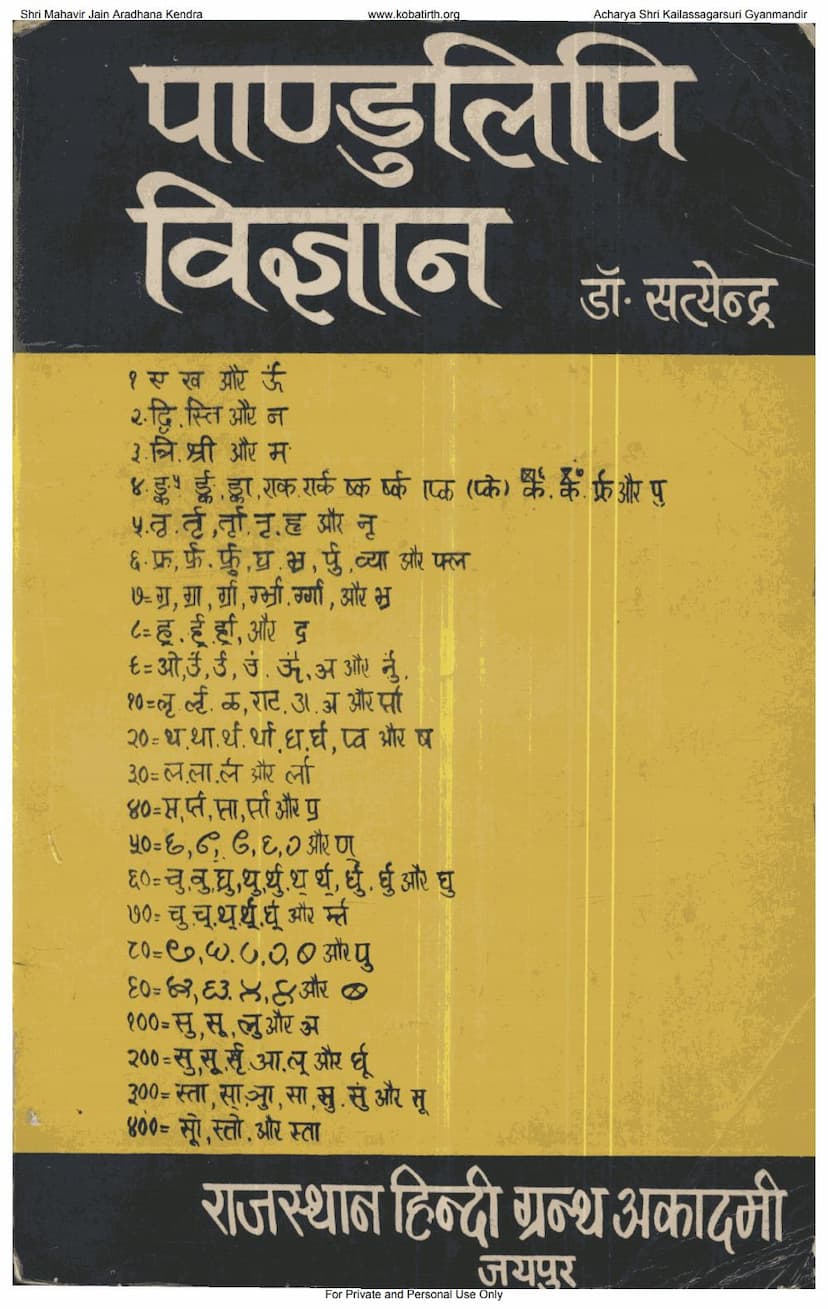 Shri Mahavir Jain Aradhana Kendra www.kobatirth.org Acharya Shri Kailassagarsuri Gyanmandir
पाण्डुलिपि
विज्ञान
डॉ. सत्येन्द्र
१ ए ख और ऊँ
२. द्वि. स्ति और न
३. त्रि. श्री और म
४. ङ्क, र्ङ्क, ङ्का, एक, र्क, ष्क, र्ष्क, प्क (प्के) र्क. और पु
५. तृ. र्तृ, र्तृा. नृ. हृ और नृ
६. फ्र, र्फ्र. र्फ्रु, घ्र. भ्र, र्पु, व्या और फ्ल
७= ग्र, ग्रा, र्ग्रा, र्ग्भा. र्ग्गा, और भ्र
८= ह्र. र्ह्र. र्ह्रा, और द्र
९= ओ, उं, र्उ, अ और र्नु.
१०= लृ. र्लृ. ळ, राट. अ और र्प्ता
२०= थ. था. र्थ. र्था. घ. र्घ, प्व और ष
३०= ल. ला. र्ल और र्ला
४०= प्त, र्प्त, प्ता, र्प्ता और प्र
५०= और ण्
६०= चु. वु. घु, थु. र्थु. थ् र्थ्, र्घु. र्घु और घु
७०= चु. चू. थू. र्थू. र्घू और र्म्त
८०= और पु
९०= और
१००= सु, सू, लु और अ
२००= सु, सू, र्सृ, आ. लू और र्घू
३००= स्ता, सा. ञा, सा, सु. सुं और सू
४००= सूो, स्तो. और स्ता
राजस्थान हिन्दी ग्रन्थ अकादमी
जयपुर
For Private and Personal Use Only